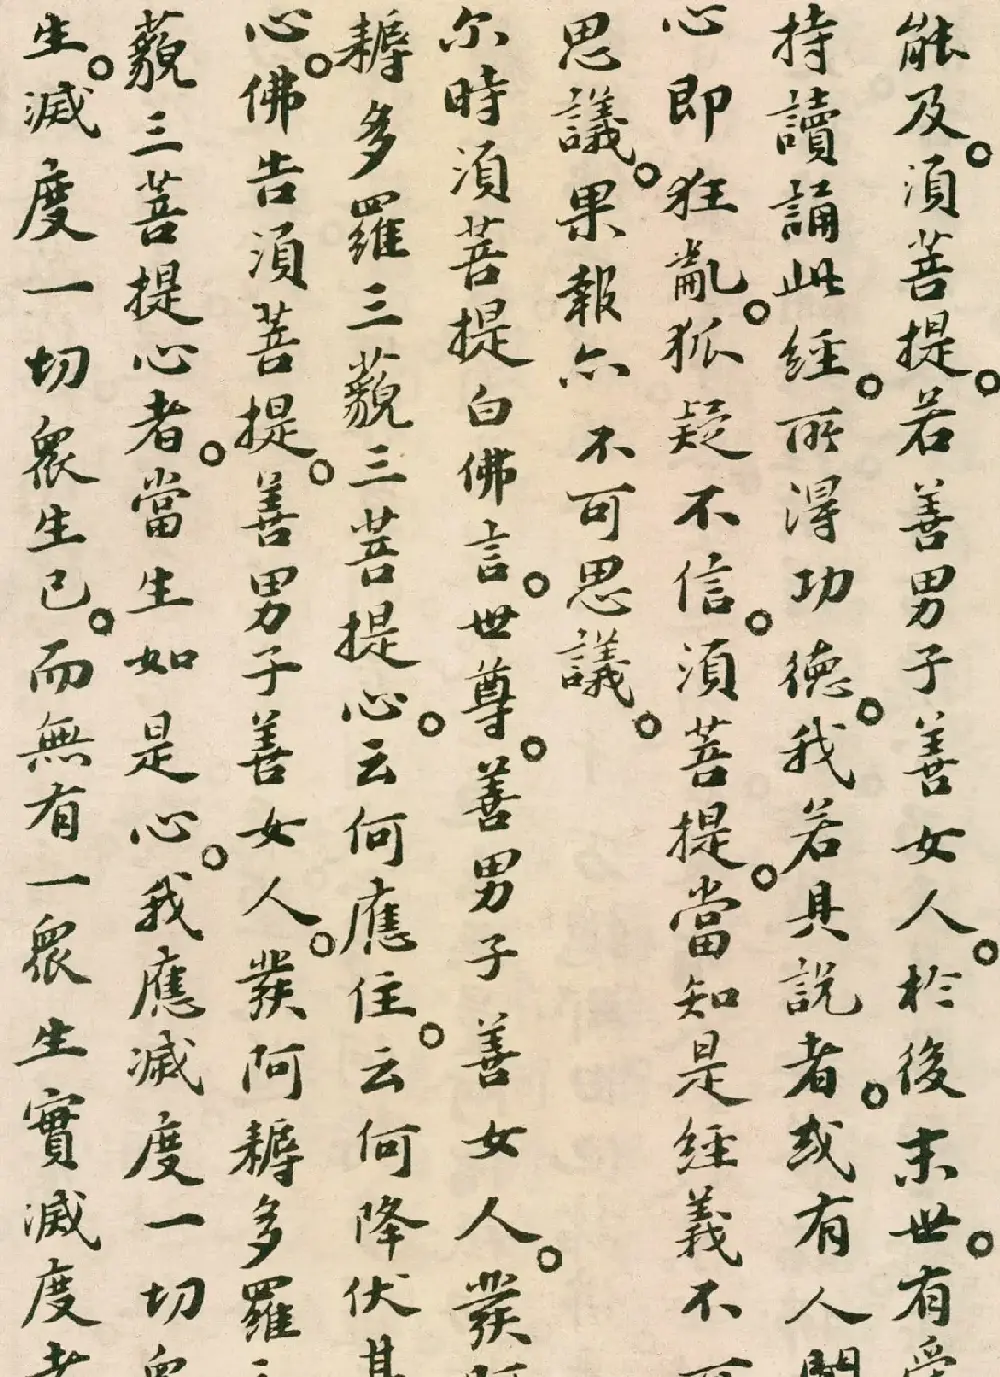 能及。須菩提。若善男子善女人。於後末世。有受
持讀誦此經。所得功德。我若具說者。或有人聞
心即狂亂。狐疑不信。須菩提。當知是經義不可
思議。果報亦不可思議。
尒時須菩提白佛言。世尊。善男子善女人。發阿
耨多羅三藐三菩提心。云何應住。云何降伏其
心。佛告須菩提。善男子善女人。發阿耨多羅三
藐三菩提心者。當生如是心。我應滅度一切眾
生。滅度一切眾生已。而無有一眾生實滅度者